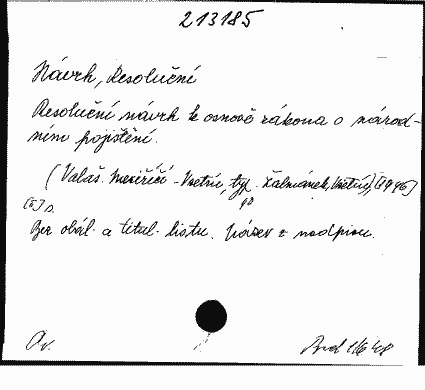 213185
Návrh, Resoluční
Resoluční návrh k osnově zákona o národ-
ním pojištění.
(Valaš. Meziříčí - Vsetín, typ. Žalmánek, Vsetín), [1946]
[5] s.
Bez obál. a titul. listu. Název z nadpisu.